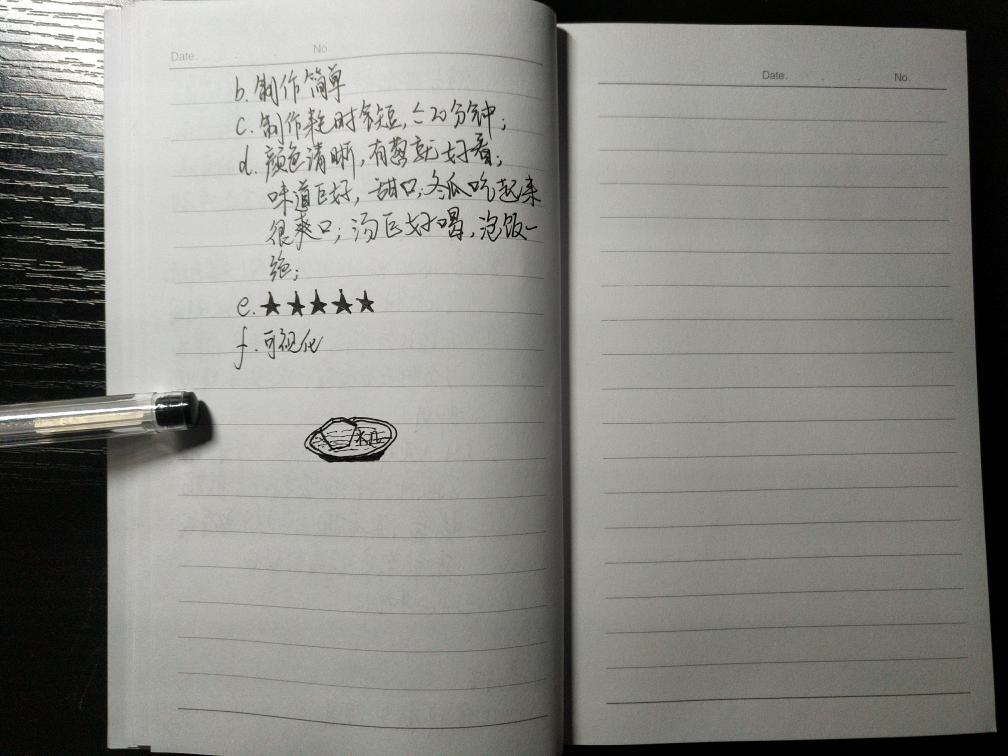 Date. No.
b. 制作简单
c. 制作耗时短, ≤20分钟;
d. 颜色清晰, 有葱就好看;
味道巨好, 甜口; 冬瓜吃起来
很爽口; 汤巨好喝, 泡饭一
绝;
e. ★★★★★
f. 可视化
Date. No.